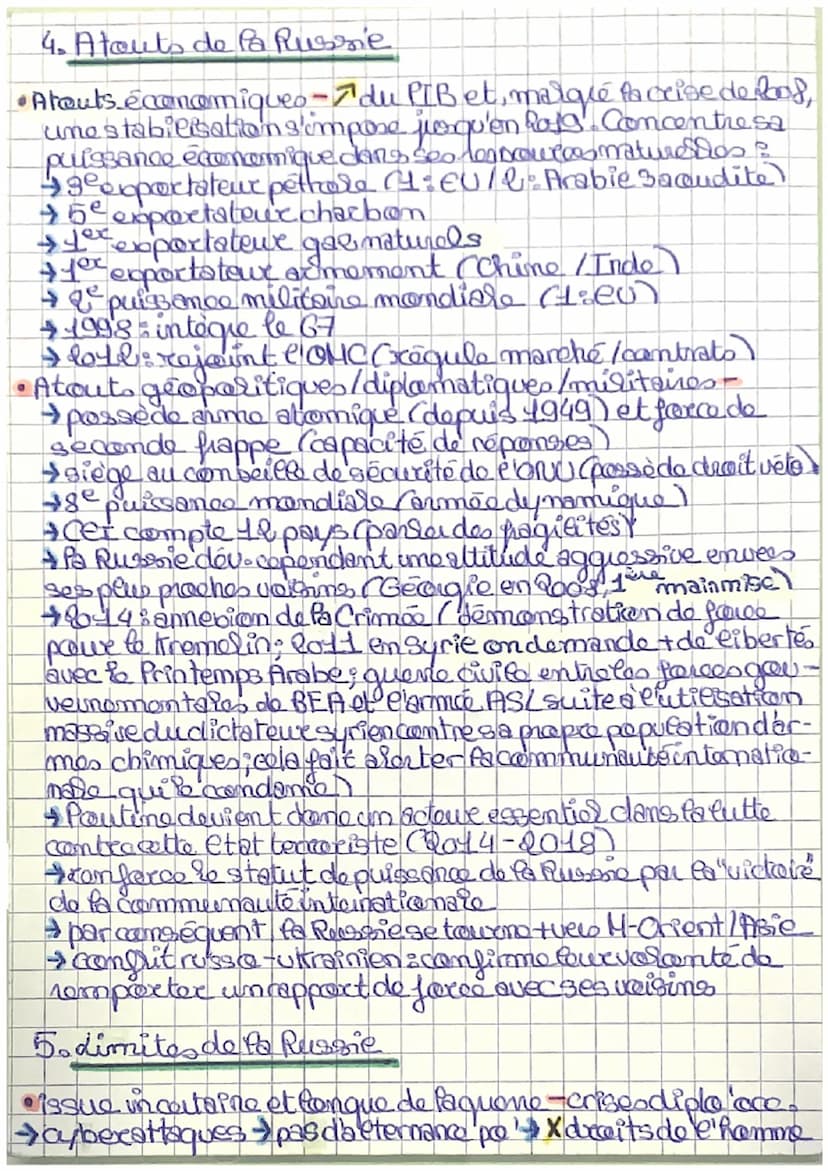 4. Atouts de la Russie
• Atouts économiques - ↗ du PIB et, malgré la crise de 2008,
une stabilisation s'impose jusqu'en 2019. Concentre sa
puissance économique dans ses ressources naturelles :
→ 3e exportateur pétrole (1: EU / 2: Arabie Saoudite)
→ 5e exportateur charbon
→ 1er exportateur gaz naturels
→ 1er exportateur armement (Chine / Inde)
→ 2e puissance militaire mondiale (1: EU)
→ 1998 : intègre le G7
→ 2012 : rejoint l'OMC (régule marché / contrats)
• Atouts géopolitiques/diplomatiques/militaires -
→ possède arme atomique (depuis 1949) et force de
seconde frappe (capacité de réponses)
→ siège au conseil de sécurité de l'ONU (possède droit véto)
→ 8e puissance mondiale (armée dynamique)
→ CEI compte 12 pays (parler des fragilités)
→ la Russie dév. cependant une attitude aggressive envers
ses plus proches voisins (Géorgie en 2008, 1ère mainmise)
→ 2014 : annexion de la Crimée (démonstration de force
pour le Kremelin ; 2011 en Syrie on demande + de libertés
avec le Printemps Arabe ; guerre civile entre les forces gou-
vernementales de BEA et l'armée ASL suite à l'utilisation
massive du dictateur syrien contre sa propre population d'ar-
mes chimiques ; cela fait alerter la communauté internatio-
nale qui le condamne)
→ Poutine devient donc un acteur essentiel dans la lutte
contre cette Etat terroriste (2014-2018)
→ renforce le statut de puissance de la Russie par la "victoire"
de la communauté internationale
→ par conséquent, la Russie se tourne + vers M-Orient / Asie
→ conflit russo-ukrainien : confirme leur volonté de
remporter un rapport de force avec ses voisins
5. Limites de la Russie
• issue incertaine et longue de la guerre - crises diplo
→ cyberattaques → pas d'alternance po° → X droits de l'Homme